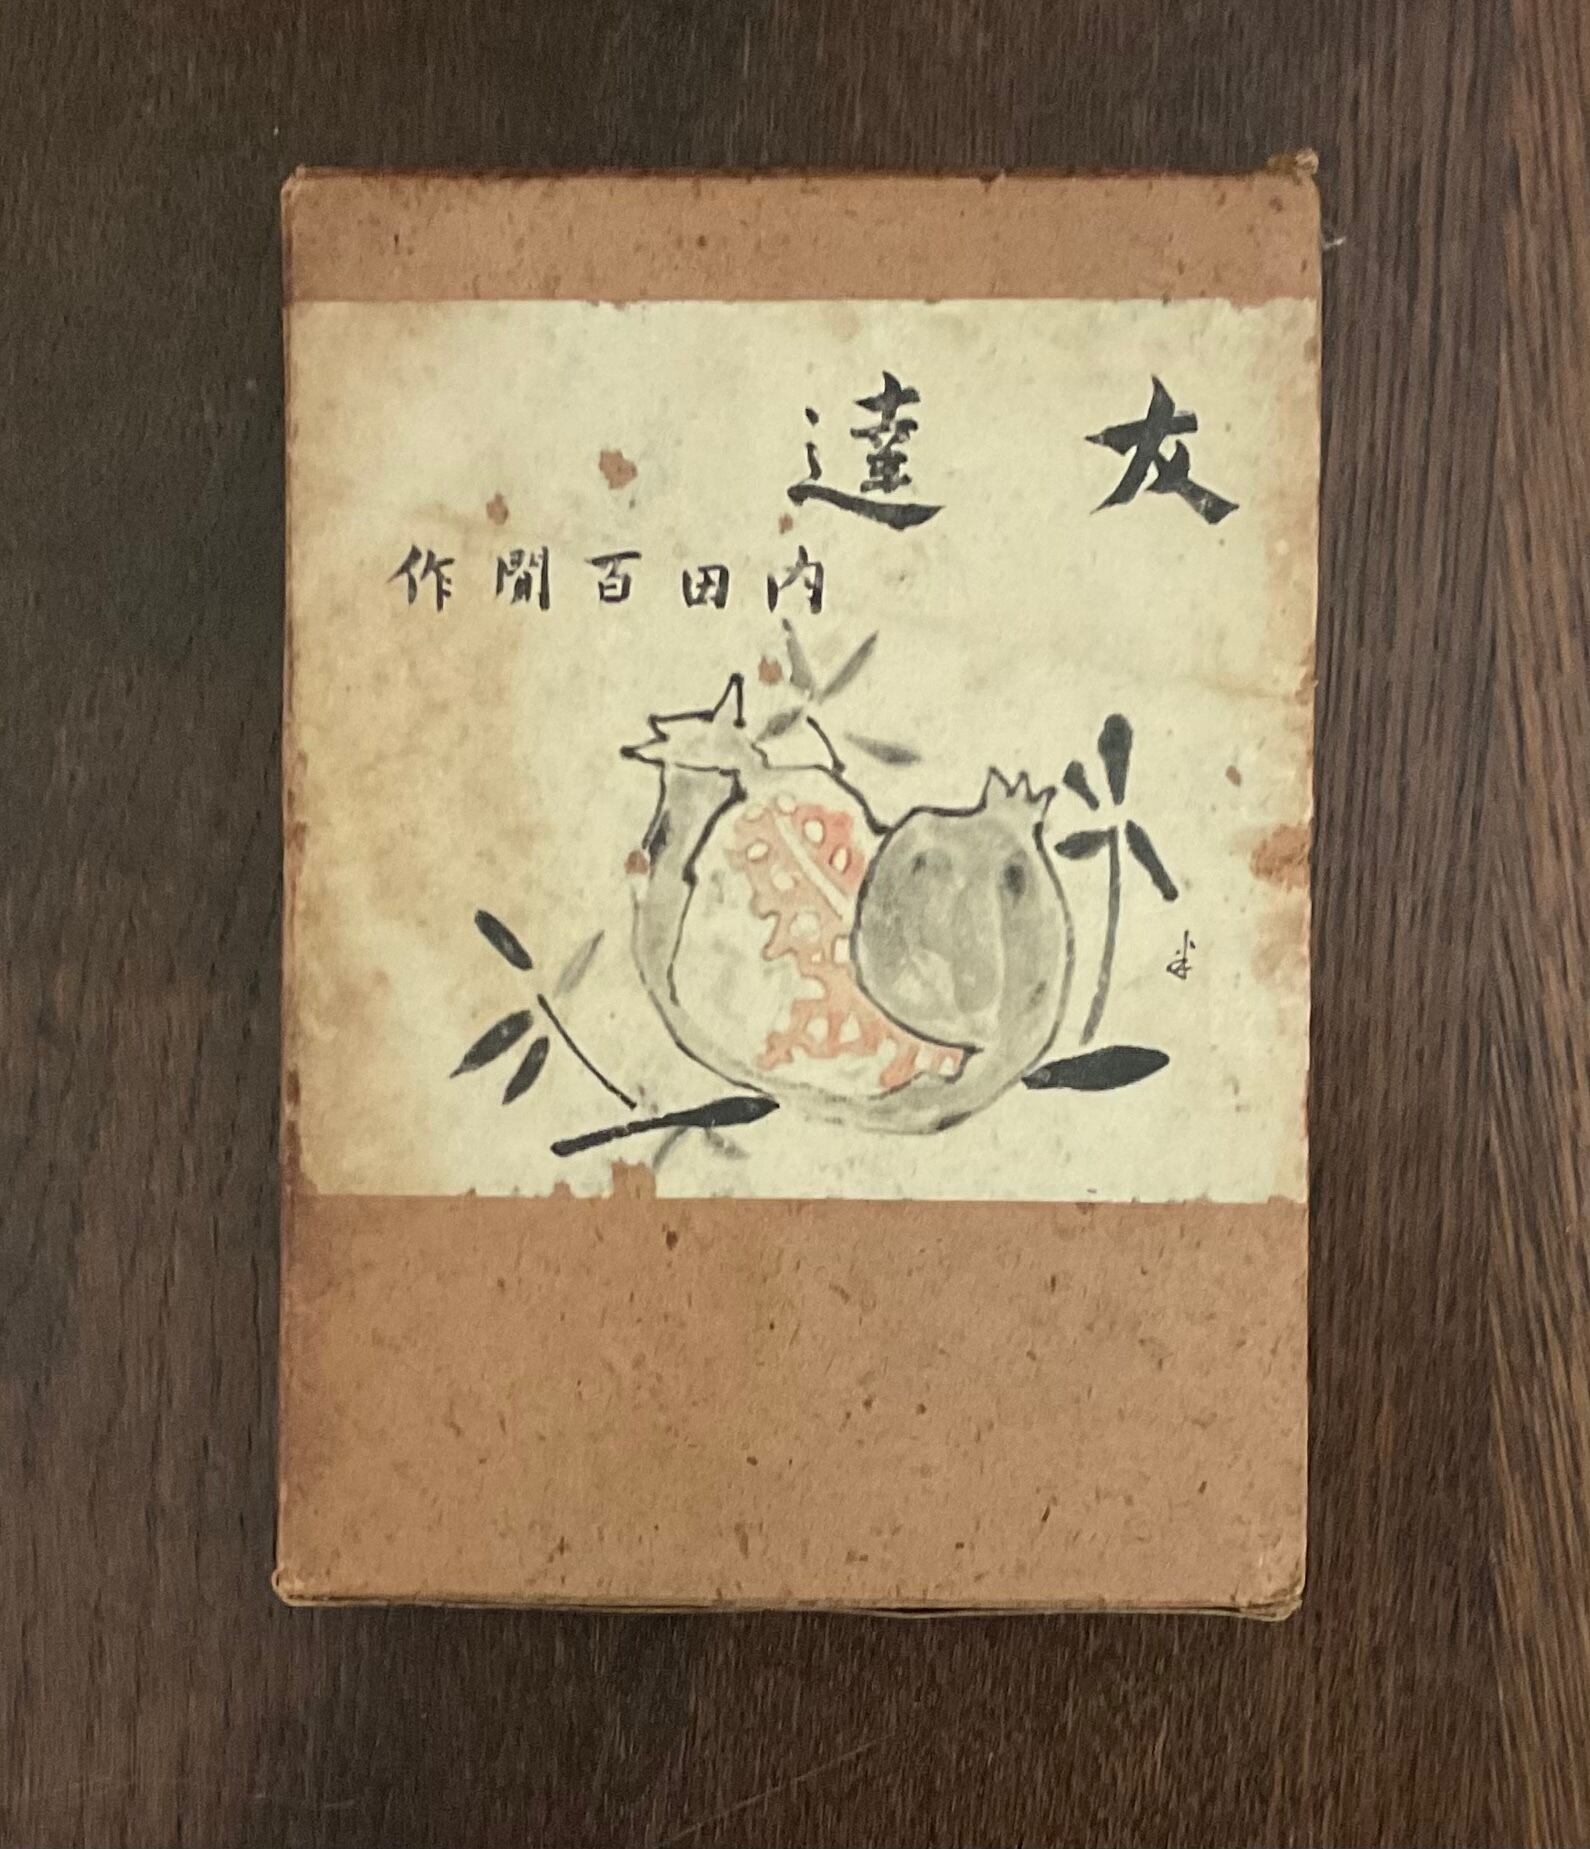 友達
内田百閒作